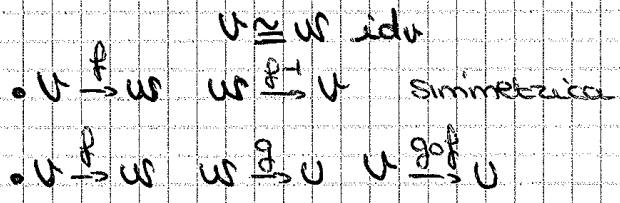 V ≅ W idv
• V →f W W →f⁻¹ V simmetrica
• V →f W W →g U V →g∘f U